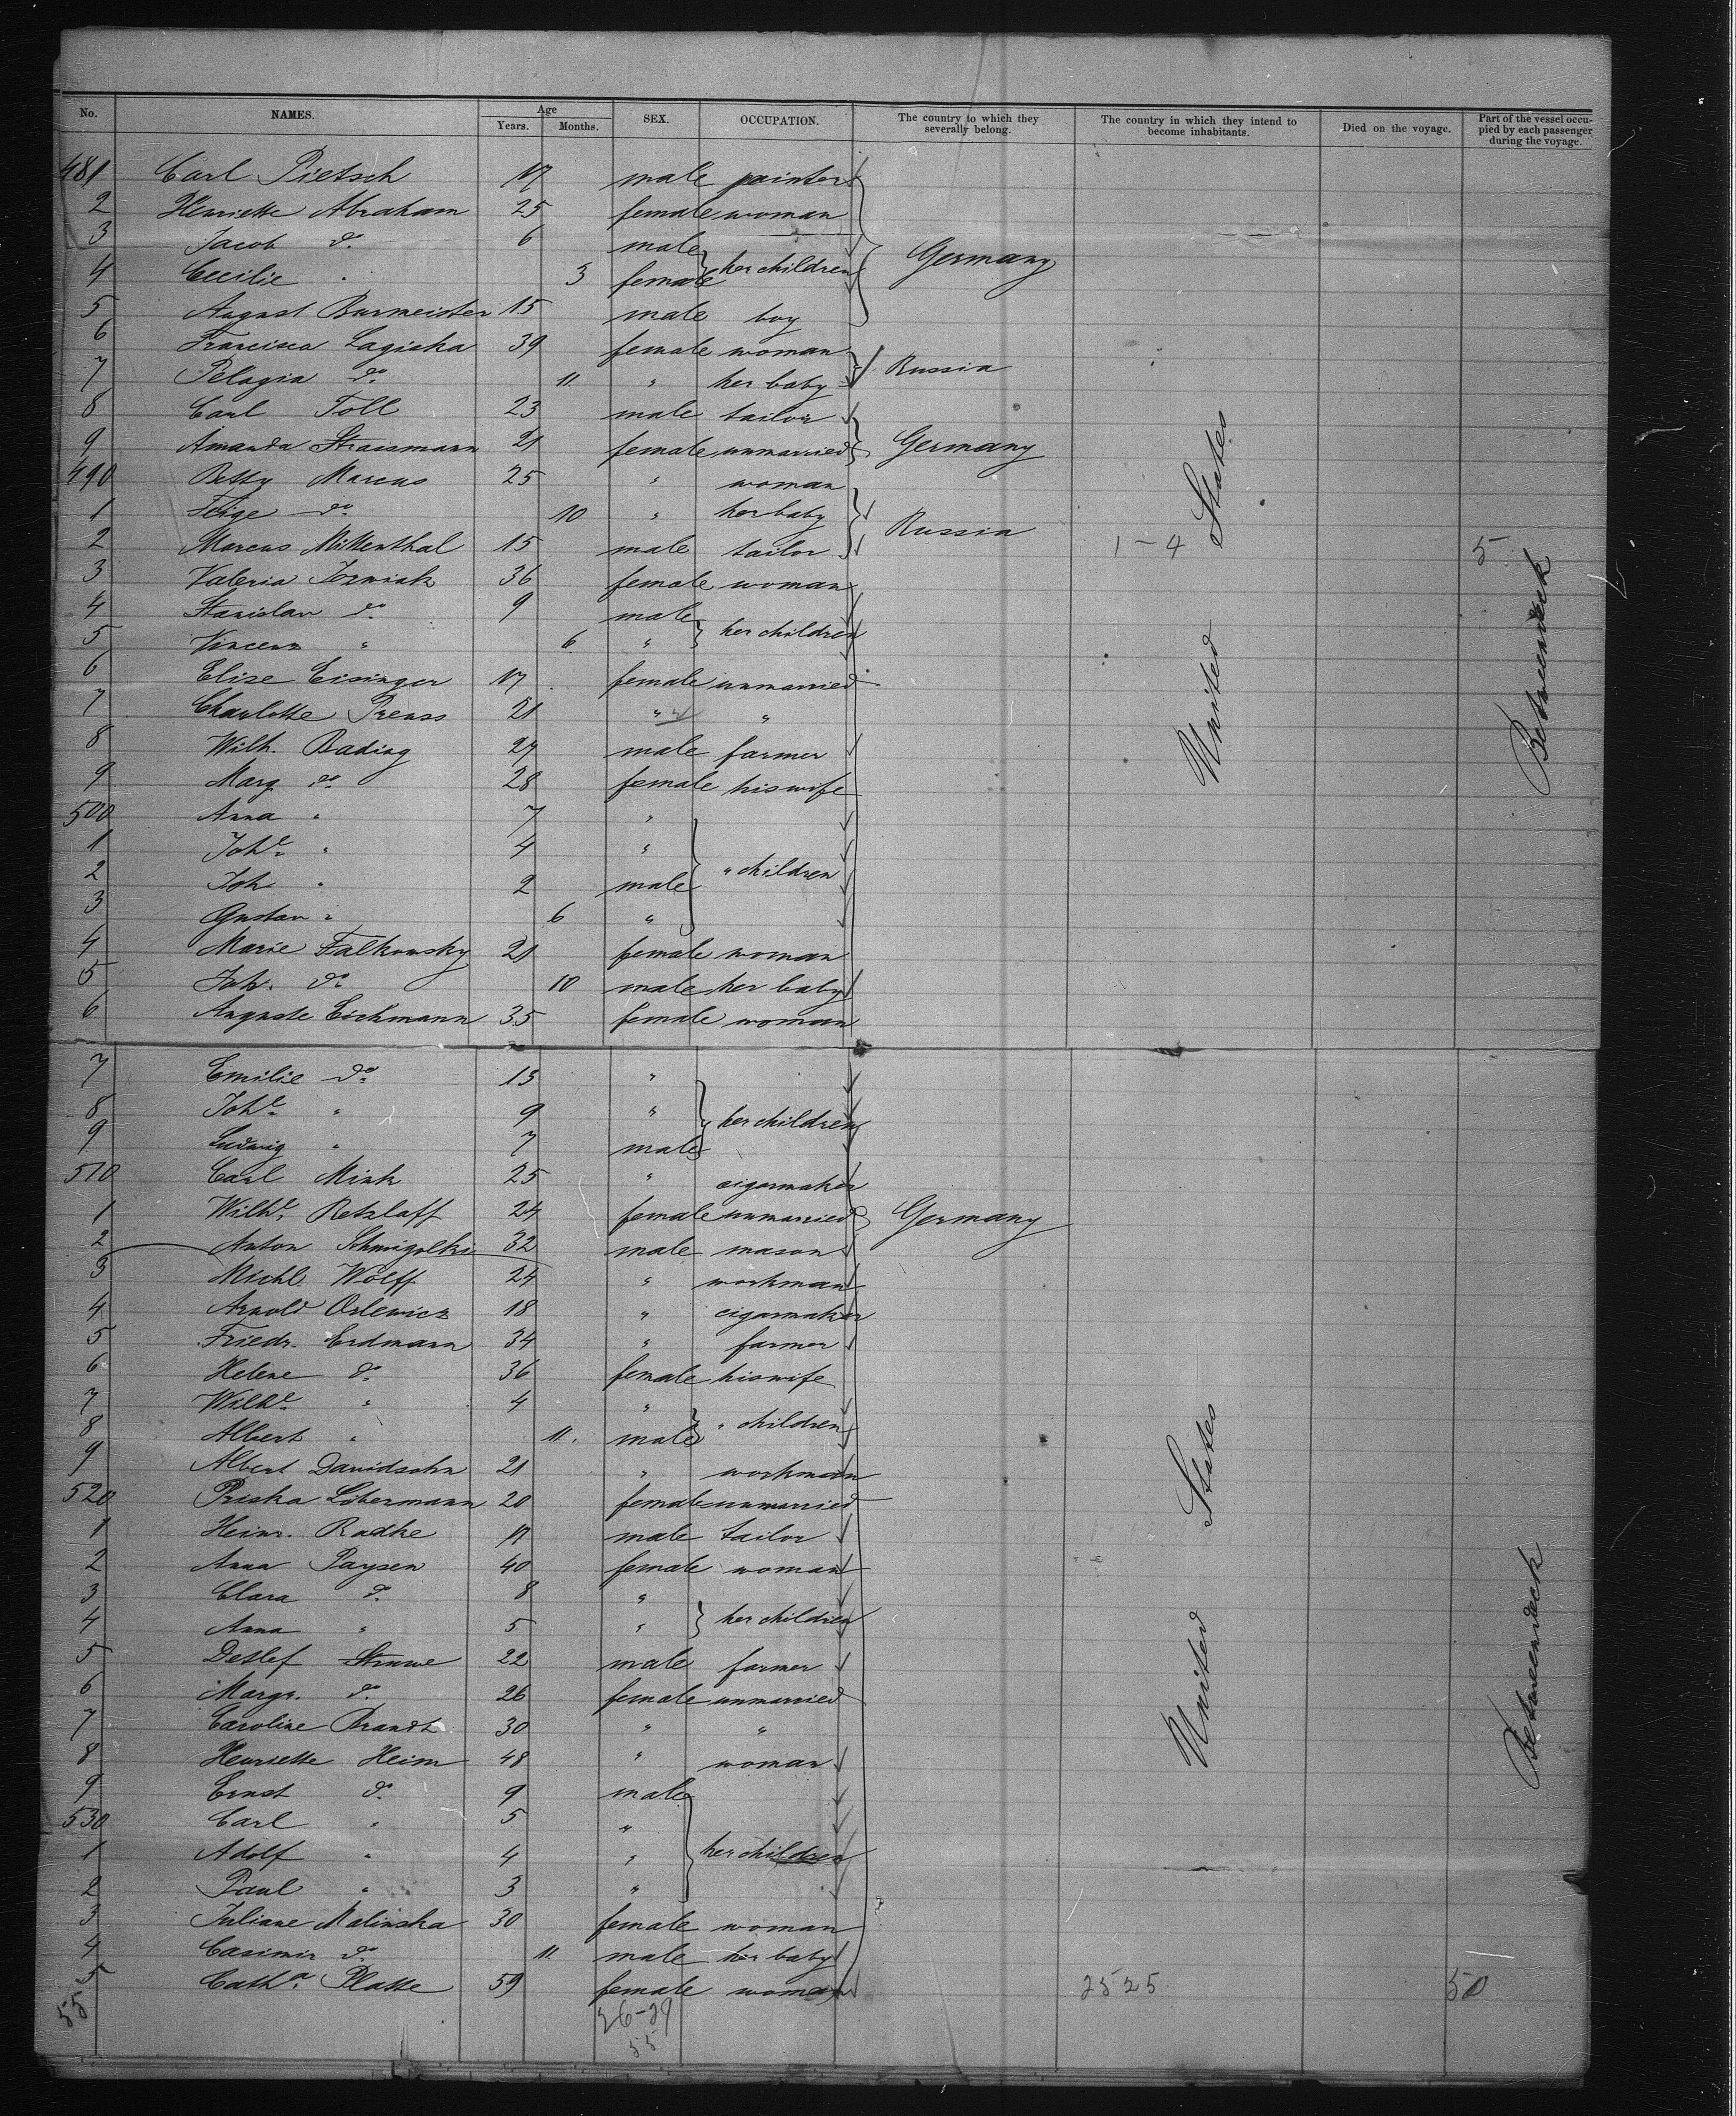 No. NAMES. Age Years. Months. SEX. OCCUPATION. The country to which they severally belong. The country in which they intend to become inhabitants. Died on the voyage. Part of the vessel occupied by each passenger during the voyage.
481 Carl Pietsch 17 male painter
2 Henriette Abraham 25 female woman
3 Jacob do 6 male
4 Cecilie " 3 female her children Germany
5 August Burmeister 15 male boy
6 Francisca Lagiska 39 female woman
7 Pelagia do 11. " her baby Russia
8 Carl Toll 23 male tailor
9 Amanda Straismann 21 female unmarried Germany
490 Betty Marcus 25 " woman
1 Feige do 10 " her baby Russia
2 Marcus Mittenthal 15 male tailor 1-4 5
3 Valeria Jozwiak 36 female woman
4 Stanislav do 9 male
5 Vincenz " 6 " her children
6 Elise Eisinger 17 female unmarried
7 Charlotte Preuss 21 " "
8 Wilh. Rading 27 male farmer United States Betweendeck
9 Marg. do 28 female his wife
500 Anna " 7 "
1 Johe " 4 "
2 Joh " 2 male " children
3 Gustav " 6 "
4 Marie Falkowsky 21 female woman
5 Joh. do 10 male her baby
6 Auguste Eichmann 35 female woman
7 Emilie do 13 "
8 Johe " 9 " her children
9 Ludwig " 7 male
510 Carl Mink 25 " cigarmaker
1 Wilhe Retzlaff 24 female unmarried Germany
2 Anton Schmigolki 32 male mason
3 Michl Wolff 24 " workman
4 Arnold Orlewicz 18 " cigarmaker
5 Friedr. Erdmann 34 " farmer
6 Helene do 36 female his wife
7 Wilhe " 4 "
8 Albert " 11. male " children
9 Albert Davidsohn 21 " workman
520 Priska Lobermann 20 female unmarried
1 Heinr. Radke 17 male tailor
2 Anna Paysen 40 female woman
3 Clara do 8 "
4 Anna " 5 " her children
5 Detlef Struwe 22 male farmer
6 Margr. do 26 female unmarried United States Betweendeck
7 Caroline Brandt 30 " "
8 Henriette Heim 48 " woman
9 Ernst do 9 male
530 Carl " 5 "
1 Adolf " 4 " her children
2 Paul " 3 "
3 Juliane Malinska 30 female woman
4 Casimir do 11. male her baby
5 Catha Platte 59 female woman 2525 50
55 26-29
55